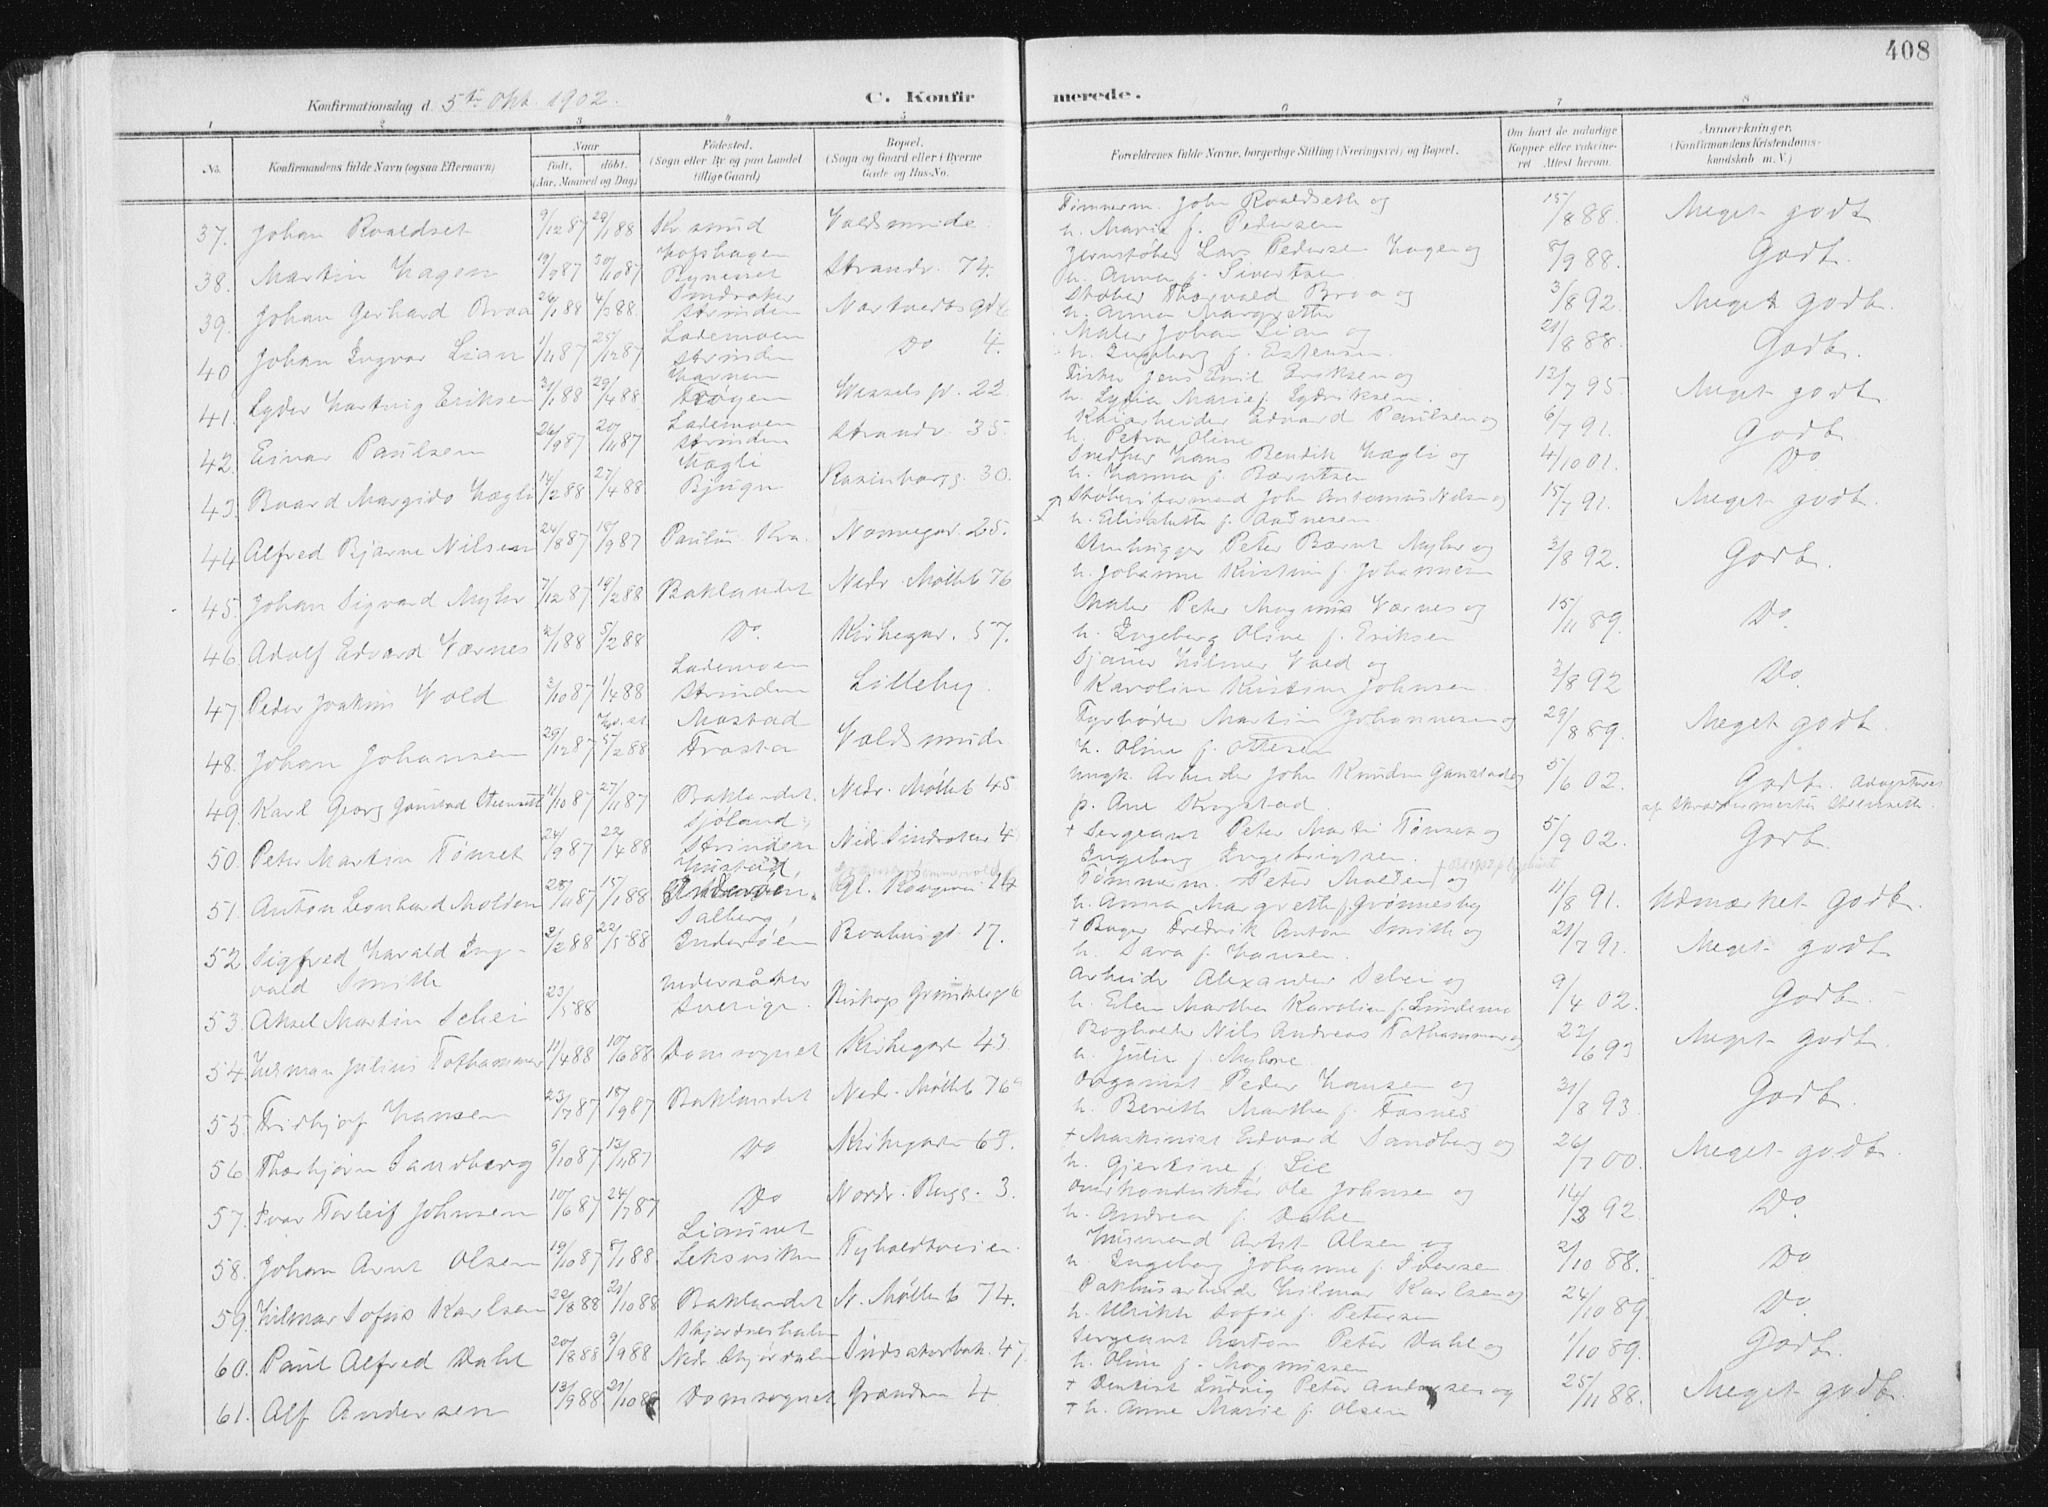 408
Konfirmationsdag d. 5te Okt. 1902.
C. Konfirmerede.
1 2 3 4 5 6 7 8
No.
Konfirmandens fulde Navn (ogsaa Efternavn)
Naar
født, døbt,
(Aar, Maaned og Dag)
Fødested.
(Sogn eller By og paa Landet
tillige Gaard)
Bopæl.
(Sogn og Gaard eller i Byerne
Gade og Hus-No.
Forældrenes fulde Navne, borgerlige Stilling (Næringsvei) og Bopæl.
Om havt de naturlige
Kopper eller vaccine-
ret Attest herom.
Anmærkninger.
(Konfirmandens Kristendoms-
kundskab m. V.)
37. Johan Roaldset 9/12 87 29/1 88 Kr.sund Voldsminde Tømmerm. John Roaldseth og
h. Marie f. Pedersen 15/8 88. Meget godt
38. Martin Hagen 19/9 87 30/10 87 Hofshagen
Bynesset Strandv. 74. Jernstøber Lars Pedersen Hagen og
h. Anna f. Sivertsen 8/9 88. Godt.
39. Johan Gerhard Braa 26/1 88 4/3 88 Sindsaker
Strinden Støber Thorvald Braa og
h. Anna Margrethe 3/8 92. Meget godt.
40 Johan Ingvar Lian 1/11 87 25/12 87 Lademoen
Strinden Do 4. Maler Johan Lian og
h. Ingeborg f. Estensen. 21/8 88. Godt.
41. Lyder Hartvig Eriksen 31/1 88 29/4 88 Havnen
Wessels g. 22. Fisker Jens Emil Eriksen og
h. Lydia Marie f. 12/7 95. Meget godt
42. Einar Paulsen 26/9 87 20/11 87 Lademoen
Strinden Strandv. 35. Edvard Paulsen og
h. Petra Oline 6/7 91. Godt
43. Baard Margido Hægli 14/2 88 27/4 88 Hægli
Bjugn Rosenborgg. 30. Hans Bendik Hægli og
h. Hanna f. Berntsen 4/10 01. Do
44 Alfred Bjarne Nilsen 24/8 87 18/9 87 Paulus Kra. Nonnegad. 25. John Antonius Nilsen og
h. Elisabeth f. Aadnesen 15/7 91. Meget godt.
45. Johan Sigvard Myhr 7/12 87 19/2 88 Baklandet Nedr. Mølleb 76 Stenhugger Peter Bernt Myhr og
h. Johanne Kristine f. Johannesen 3/8 92. Godt.
46. Adolf Edvard Værnes 2/1 88 5/2 88 Do. Kirkegad. 57. Maler Peter Magnus Værnes og
h. Ingeborg Oline f. Eriksen 15/11 89. Do.
47. Peder Joakim Vold 3/10 87 1/4 88 Lademoen
Strinden Lilleby. Sjauer Hilmer Vold og
Karoline Kristine Johnsen. 3/8 92 Do.
48. Johan Johansen 29/12 87 5/2 88 Mostad
Frosta Voldsminde Fyrbøder Martin Johannesen og
h. Oline f. Ottesen 29/8 89. Meget godt.
49. Karl Georg Ganstad 11/10 87 27/11 87 Baklandet. Nedr. Mølleb 45 ungk. Arbeider John Knudsen Ganstad og
p. Ane Krogstad. 5/6 02. Godt. Adopteret
af Skræddermester Steenseth.
50. Peter Martin Tønset 24/9 87 22/4 88 Sjøland.
Strinden Nedr. Sindsaker 4 + Sergeant Peter Martin Tønset og
Ingeborg Ingebrigtsen. 5/9 02. Godt.
51. Anton Leonhard Molden 25/11 87 15/1 88 Hustad,
Inderøen. Gl. Kongevei 14 Tømmerm. Peter Molden og
h. Anna Margrethe f. Grønnesby 11/8 91. Udmærket Godt.
52. Sigfred Harald Ing-
vald Smith 2/2 88 22/5 88 Salberg,
Inderøen Baahusgt 17. + Bager Fredrik Anton Smith og
h. Sara f. Hansen. 21/7 91. Meget godt
53. Aksel Martin Schei 23/5 88 Undersåker
Sverige. Bishop Grimkelsgt 6 Arbeider Alexander Schei og
h. Elen Martha Karolin f. Lundemo 9/4 02. Godt.
54. Herman Julius Tothammer 11/4 88 10/6 88 Domsognet Kirkegaden 43. Bogholder Nils Andreas Tothammer og
h. Julie f. Myhre. 22/6 93 Meget godt.
55. Fridthjof Hansen 23/7 87 18/9 87 Baklandet Nedr. Mølleb 76a Organist Peder Hansen og
h. Bereth Martha f. Fosnes 31/8 93. Godt.
56. Thorbjørn Sandberg 9/10 87 13/11 87 Do Kirkegaden 63. + Maskinist Edvard Sandberg og
h. Gjertine f. Lie 26/7 00. Meget godt.
57. Ivar Torleif Johnsen 10/6 87 24/7 87 Do Nordr. Bugg. 3. Overkonduktør Ole Johnsen og
h. Andrea f. Dahl 14/8 92. Do.
58. Johan Arnt Olsen 19/10 87 8/1 88 Liaunet
Leksviken Tyholdtveien. Husmand Arnt Olsen og
h. Ingeborg Johanne f. Iversen 2/10 88. Do
59. Hilmar Sofus Karlsen 22/8 88 21/10 88 Baklandet N. Mølleb 74. Pakhusarbeider Hilmar Karlsen og
h. Ulrikke Sofie f. Petersen 24/10 89. Do.
60. Paul Alfred Dahl 20/8 88 9/9 88 Skjærdneshalm
Nedr. Stjørdalen Sindsakerbak. 47. Sergeant Anton Peter Dahl og
h. Oline f. Mognissen 1/10 89. Godt.
61. Alf Andersen 13/9 88 21/10 88 Domsognet Grænsen 4 + Dentist Ludvig Peter Andersen og
+ h. Anne Marie f. Olsen 25/11 88. Meget godt.